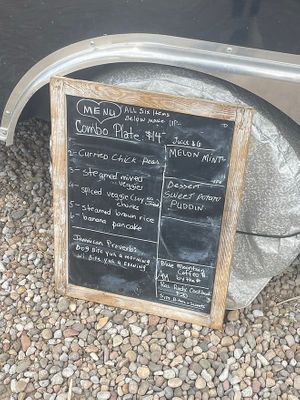 MENU
ALL SIX Items
Below make
UP-
Combo Plate $14
2- Curried Chick Peas
3- steamed mixed
veggies
4- spiced veggie Soy
chunks
5- steamed brown rice
6- banana pancake
Jamaican Proverbs
Dog Bite Yuh a morning
wi Bite Yuh a Evening
Juice $6
MELON MINT
Dessert
SWEET POTATO
PUDDIN
Blue Mountain
Coffee $
by the #